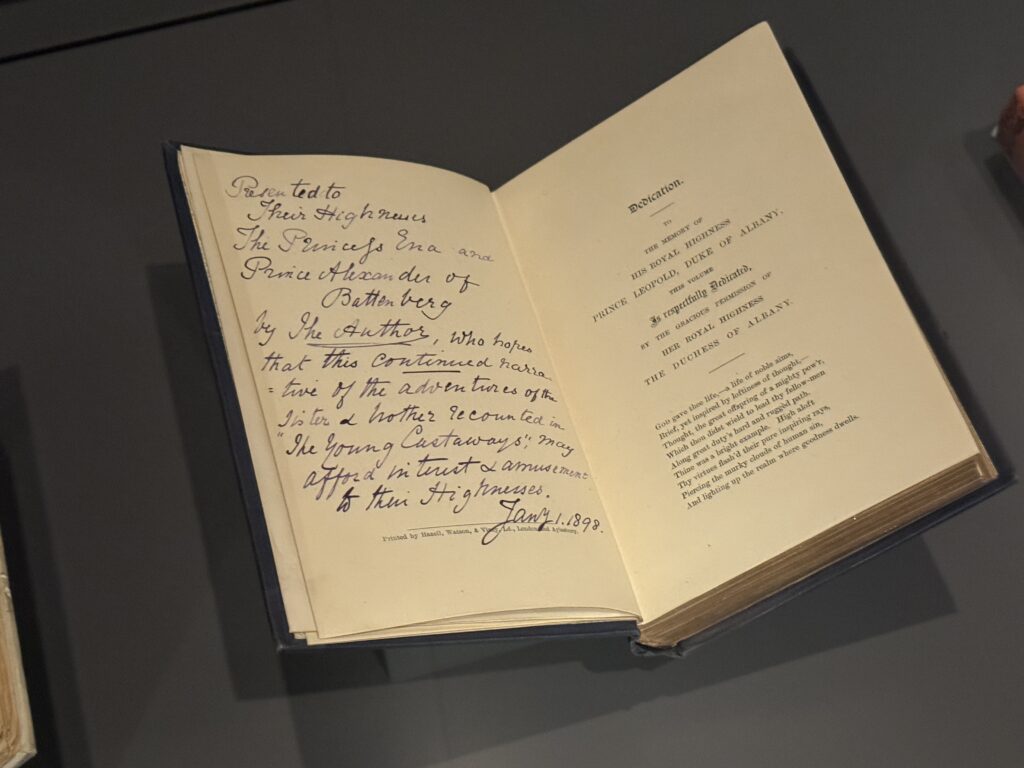 Presented to
Their Highnesses
The Princess Ena and
Prince Alexander of
Battenberg
by The Author, who hopes
that this continued narra
=tive of the adventures of the
Sister & brother recounted in
"The Young Castaways", may
afford interest & amusement
to their Highnesses.
Jany 1. 1898.
Printed by Hazell, Watson, & Viney, Ld., London and Aylesbury.
Dedication.
TO
THE MEMORY OF
HIS ROYAL HIGHNESS
PRINCE LEOPOLD, DUKE OF ALBANY,
THIS VOLUME
Is respectfully Dedicated,
BY THE GRACIOUS PERMISSION OF
HER ROYAL HIGHNESS
THE DUCHESS OF ALBANY.
GOD gave thee life,—a life of noble aims,
Brief, yet inspired by loftiness of thought,—
Thought, the great offspring of a mighty pow'r,
Which thou didst wield to lead thy fellow-men
Along great duty's hard and rugged path.
Thine was a bright example. High aloft
Thy virtues flash'd their pure inspiring rays,
Piercing the murky clouds of human sin,
And lighting up the realm where goodness dwells.